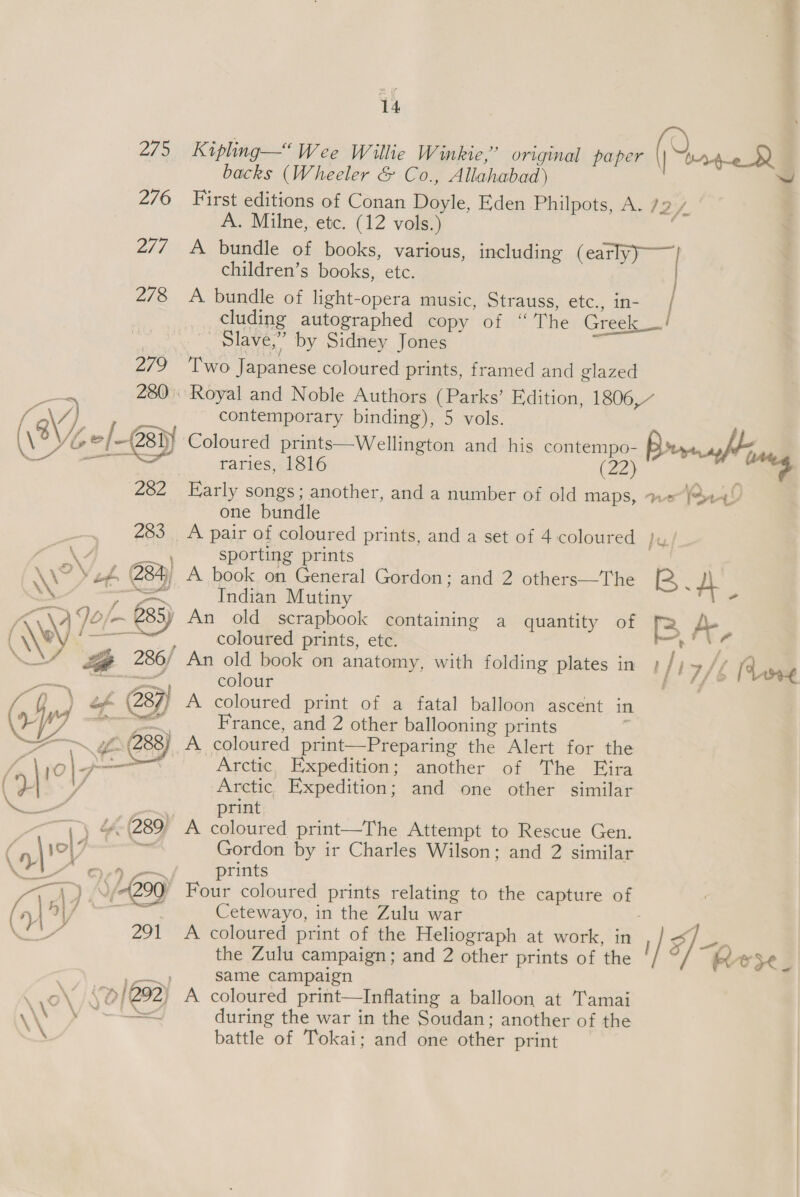 14
275 Kipling—“ Wee Willie Winkie,” original paper
backs (Wheeler & Co., Allahabad)
276 First editions of Conan Doyle, Eden Philpots, A.
A. Milne, etc. (12 vols.)
277 A bundle of books, various, including (early)
children’s books, etc.
278 A bundle of light-opera music, Strauss, etc., in-
cluding autographed copy of “ The Greek
Slave,” by Sidney Jones
279 Two Japanese coloured prints, framed and glazed
280 Royal and Noble Authors (Parks’ Edition, 1806,
contemporary binding), 5 vols.
281 Coloured prints—Wellington and his contempo-
raries, 1816 (22)
282 Early songs; another, and a number of old maps,
one bundle
283 A pair of coloured prints, and a set of 4 coloured
sporting prints
284 A book on General Gordon; and 2 others—The B. A
Indian Mutiny
285 An old scrapbook containing a quantity of B. A.
coloured prints, etc.
286 An old book on anatomy, with folding plates in 1/17/6
colour
287 A coloured print of a fatal balloon ascent in
France, and 2 other ballooning prints
288 A coloured print—Preparing the Alert for the
Arctic Expedition; another of The Eira
Arctic Expedition; and one other similar
print
289 A coloured print—The Attempt to Rescue Gen.
Gordon by ir Charles Wilson; and 2 similar
prints
290 Four coloured prints relating to the capture of
Cetewayo, in the Zulu war
291 A coloured print of the Heliograph at work, in
the Zulu campaign; and 2 other prints of the Rose
same campaign
292 A coloured print—Inflating a balloon at Tamai
during the war in the Soudan; another of the
battle of Tokai; and one other print